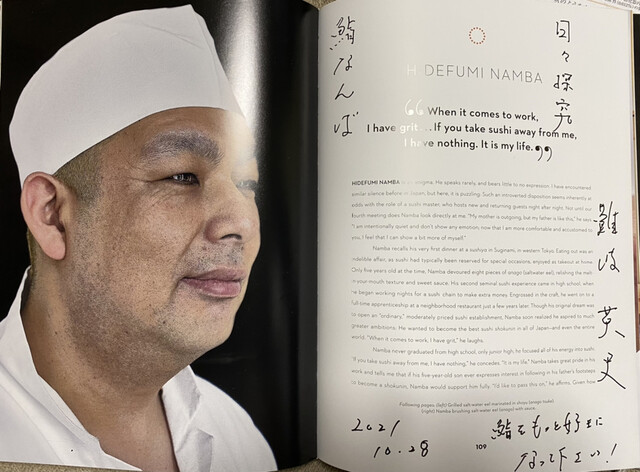 鮨なんば
日々探究
HIDEFUMI NAMBA
“ When it comes to work,
I have grit. . . If you take sushi away from me,
I have nothing. It is my life. ”
HIDEFUMI NAMBA is an enigma. He speaks rarely, and bears little to no expression. I have encountered
similar silence before in Japan, but here, it is puzzling. Such an introverted disposition seems inherently at
odds with the role of a sushi master, who hosts new and returning guests night after night. Not until our
fourth meeting does Namba look directly at me. "My mother is outgoing, but my father is like this," he says.
"I am intentionally quiet and don't show any emotion; now that I am more comfortable and accustomed to
you, I feel that I can show a bit more of myself."
Namba recalls his very first dinner at a sushiya in Suginami, in western Tokyo. Eating out was an
indelible affair, as sushi had typically been reserved for special occasions, enjoyed as takeout at home.
Only five years old at the time, Namba devoured eight pieces of anago (saltwater eel), relishing the melt-
in-your-mouth texture and sweet sauce. His second seminal sushi experience came in high school, when
he began working nights for a sushi chain to make extra money. Engrossed in the craft, he went on to a
full-time apprenticeship at a neighborhood restaurant just a few years later. Though his original dream was
to open an "ordinary," moderately priced sushi establishment, Namba soon realized he aspired to much
greater ambitions. He wanted to become the best sushi shokunin in all of Japan—and even the entire
world. "When it comes to work, I have grit," he laughs.
Namba never graduated from high school, only junior high; he focused all of his energy into sushi.
"If you take sushi away from me, I have nothing," he concedes. "It is my life." Namba takes great pride in his
work and tells me that if his five-year-old son ever expresses interest in following in his father's footsteps
to become a shokunin, Namba would support him fully. "I'd like to pass this on," he affirms. Given how
難波英史
Following pages: (left) Grilled salt-water eel marinated in shoyu (anago tsuke).
(right) Namba brushing salt-water eel (anago) with sauce.
109
2021
10.28
鮨をもっと好きに
なって下さい!